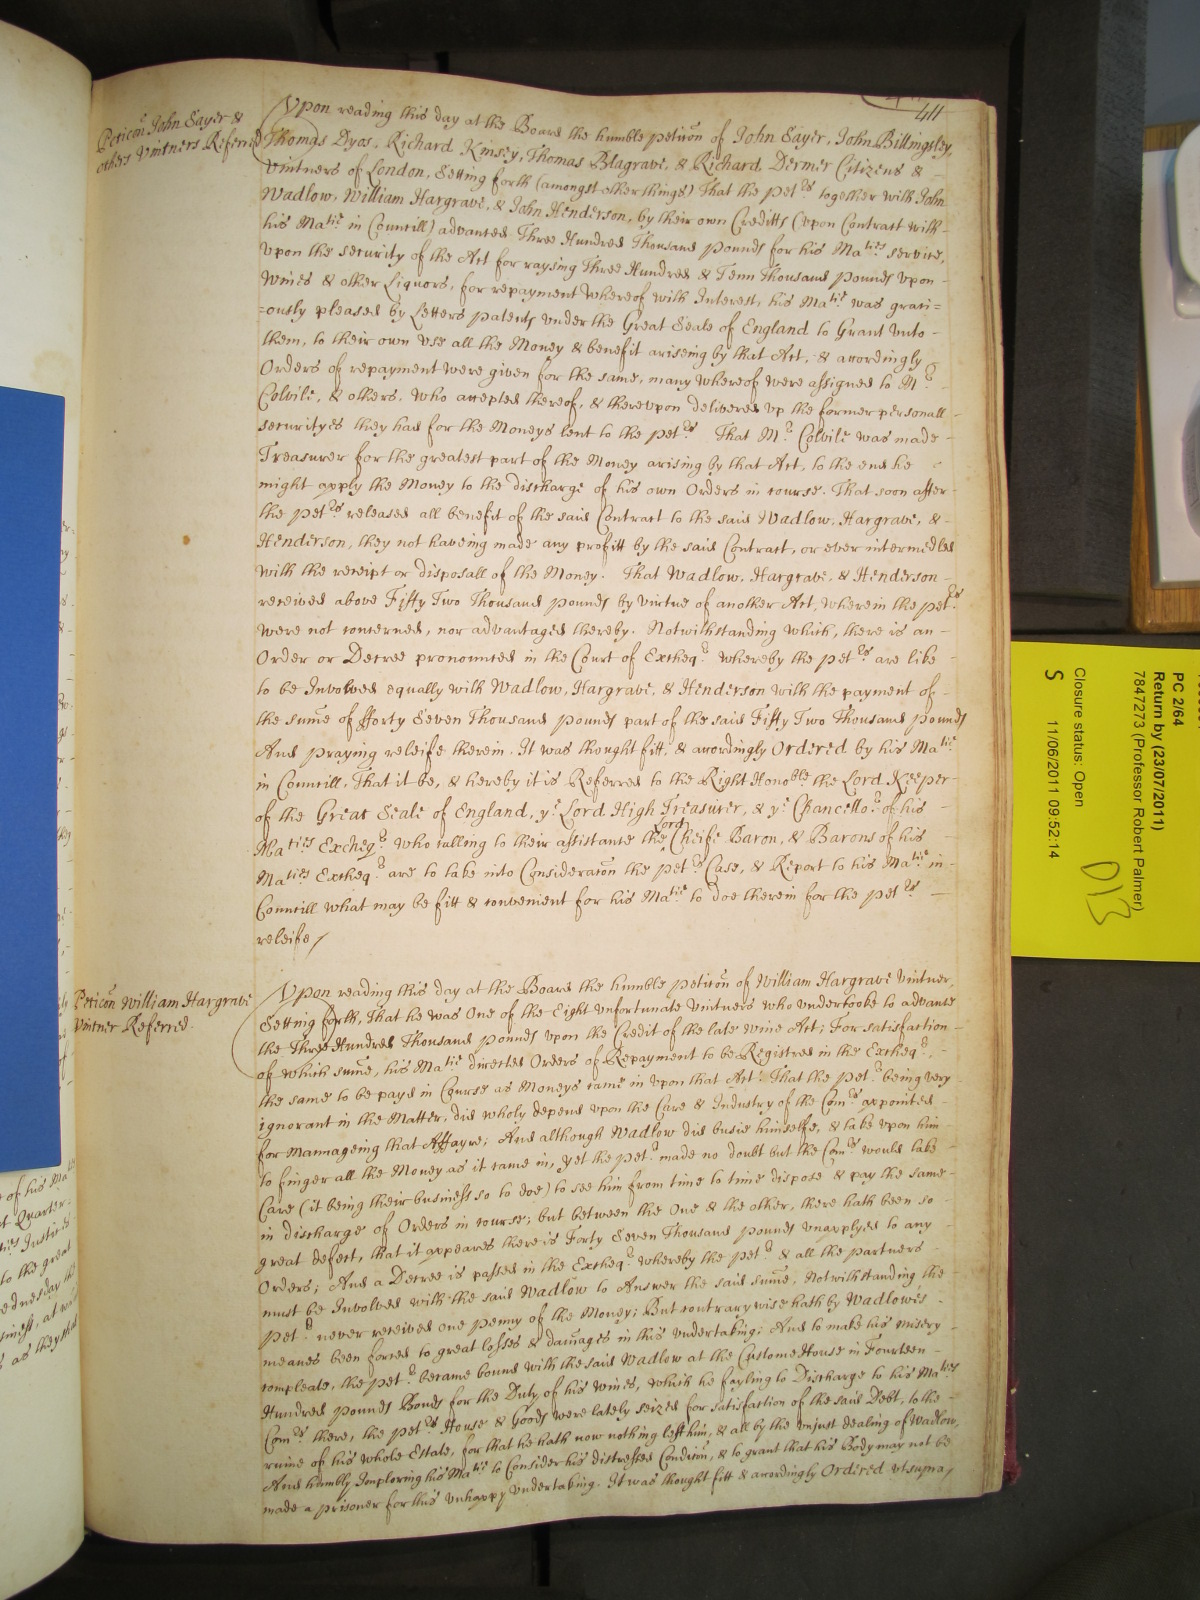 411
Peticõn John Sayer &
others Vintners Referred
Vpon reading this day at the Board the humble peticõn of John Sayer, John Billingsley,
Thomas Dyos, Richard Kinsey, Thomas Blagrave, & Richard Dermer Citizens &
Vintners of London, Setting forth (amongst other things) That the pet:rs together with John
Wadlow, William Hargrave, & John Henderson, by their own Creditts (vpon Contract with
his Ma:tie in Councill) advanced Three Hundred Thousand pounds for his Ma:ties service,
vpon the security of the Act for raysing Three Hundred & Tenn Thousand pounds vpon
Wines & other Liquors, for repayment whereof with Interest, his Ma:tie was grati=
=ously pleased by Letters patents vnder the Great Seale of England to Grant vnto
them, to their own vse all the Money & benefit ariseing by that Act, & accordingly
Orders of repayment were given for the same, many whereof were assigned to M:r
Colvile, & others, who accepted thereof, & therevpon delivered vp the former personall
securityes they had for the Moneys lent to the pet:rs That M:r Colvile was made
Treasurer for the greatest part of the Money arising by that Act, to the end he
might apply the Money to the discharge of his own Orders in course. That soon after
the pet:rs released all benefit of the said Contract to the said Wadlow, Hargrave, &
Henderson, they not haveing made any profitt by the said Contract, or ever intermedled
with the receipt or disposall of the Money. That Wadlow, Hargrave, & Henderson
received above Fifty Two Thousand pounds by virtue of another Act, wherein the pet:rs
were not concerned, nor advantaged thereby. Notwithstanding which, there is an
Order or Decree pronounced in the Court of Excheq:r whereby the pet:rs are like
to be Involved equally with Wadlow, Hargrave, & Henderson with the payment of
the sum̃e of fforty Seven Thousand pounds part of the said Fifty Two Thousand pounds
And praying releife therein. It was thought fitt, & accordingly Ordered by his Ma:tie
in Councill, That it be, & hereby it is Referred to the Right Hono:ble the Lord Keeper
of the Great Seale of England, y:e Lord High Treasurer, & y:e Chancello:r of his
Ma:ties Excheq:r who calling to their assistance the Lord Cheife Baron, & Barons of his
Ma:ties Excheq:r are to take into Consideracõn the pet:rs Case, & Report to his Ma:tie in
Councill what may be fitt & convenient for his Ma:tie to doe therein for the pet:rs
releife /
Peticõn William Hargrave
Vintner Referred.
Vpon reading this day at the Board the humble peticõn of William Hargrave Vintner,
Setting forth, That he was One of the Eight vnfortunate Vintners who vndertooke to advance
the Three Hundred Thousand pounds vpon the Credit of the late Wine Act; For satisfaction
of which sum̃e, his Ma:tie directed Orders of Repayment to be Registred in the Excheq:r,
the same to be payd in Course as Moneys came in vpon that Act: That the pet:r being very
ignorant in the Matter, did wholy depend vpon the Care & Industry of the Com:rs appointed
for Mannageing that Affayre; And although Wadlow did busie himselfe, & take vpon him
to finger all the Money as it came in, yet the pet:r made no doubt but the Com:rs would take
Care (it being their business so to doe) to see him from time to time dispose & pay the same
in discharge of Orders in course; but between the One & the other, there hath been so
great defect, that it appeares there is Forty Seven Thousand pounds vnapplyed to any
Orders; And a Decree is passed in the Excheq:r whereby the pet:r & all the partners
must be Involved with the said Wadlow to Answer the said sum̃e, Notwithstanding the
pet:r never received one penny of the Money; But contrarywise hath by Wadlowes
meanes been forced to great losses & dam̃ages in this vndertaking; And to make his misery
compleate, the pet:r became bound with the said Wadlow at the Custome House in Fourteen
Hundred pounds Bonds for the Duty of his wines, which he fayling to Discharge to his Ma:ties
Com:rs there, the pet:rs House & Goods were lately seized for satisfaction of the said Debt, to the
ruine of his whole Estate, for that he hath now nothing left him, & all by the vnjust dealing of Wadlow,
And humbly Imploring his Ma:tie to Consider his distressed Condic̃on, & to grant that his Body may not be
made a prisoner for this vnhappy vndertaking. It was thought fitt & accordingly Ordered vt supra /
PC 2/64
Return by (23/07/2011)
7847273 (Professor Robert Palmer)
Closure status: Open
S 11/06/2011 09:52:14
D13